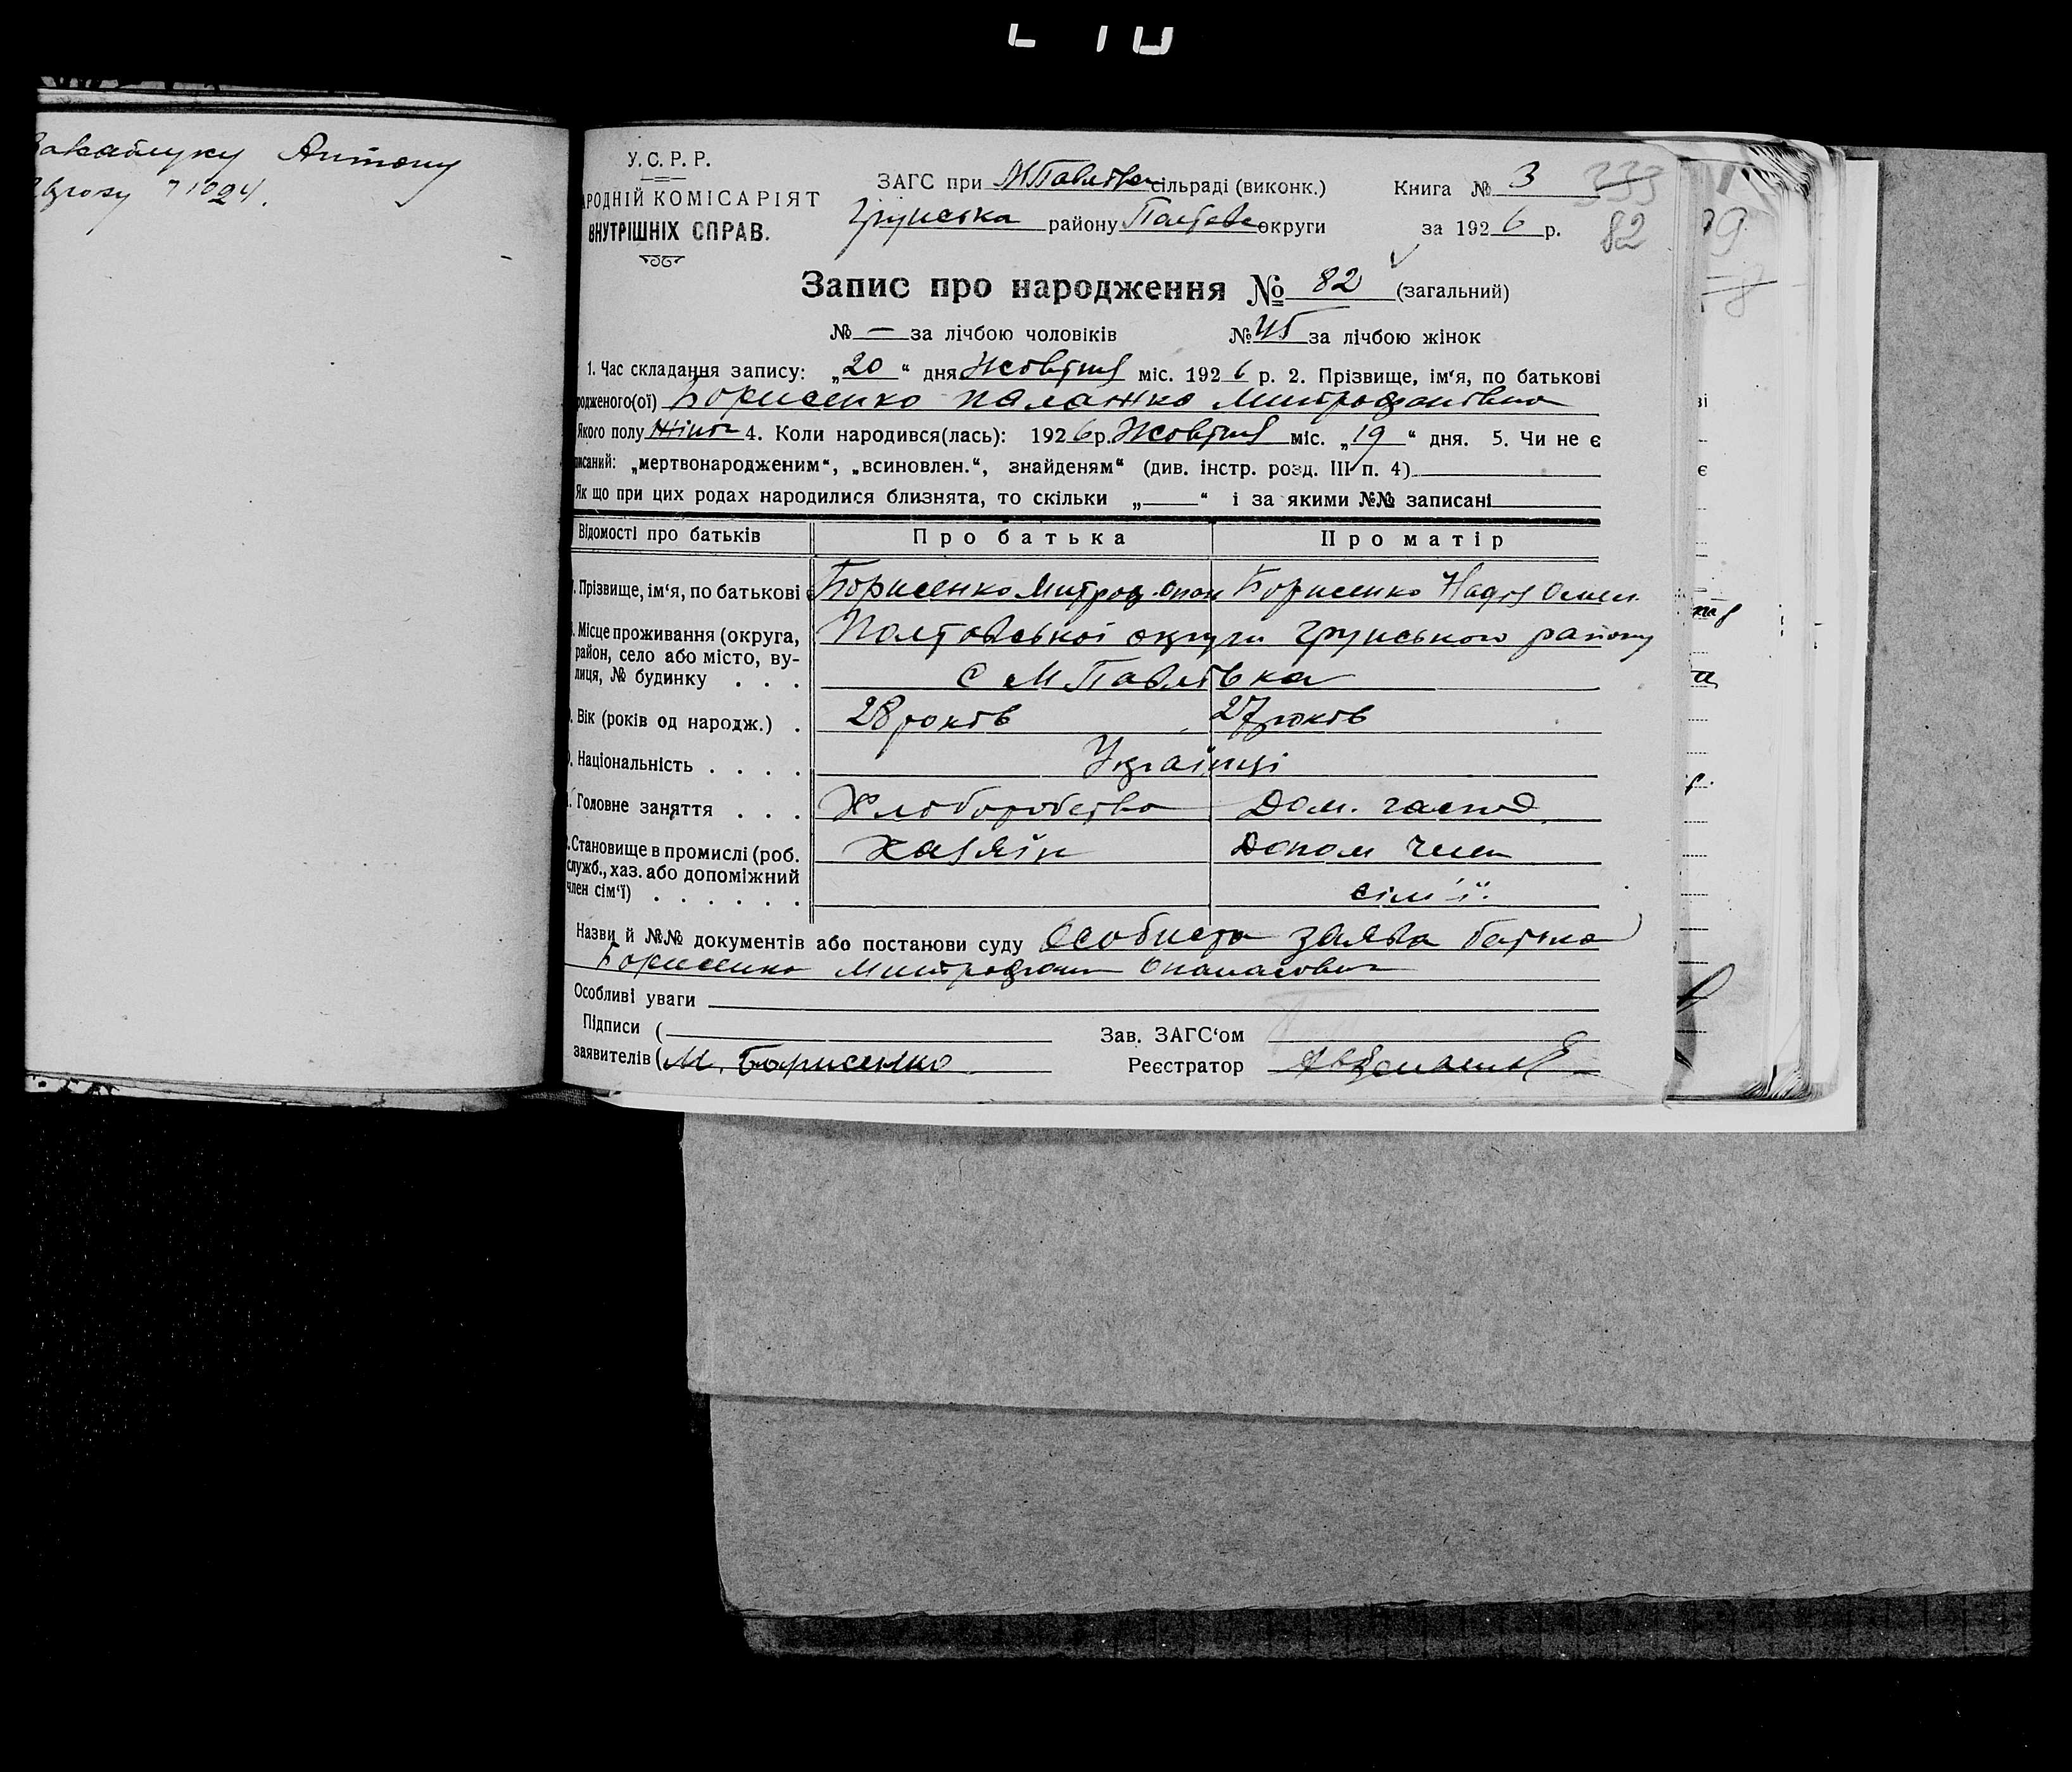 Антону
71024.
У. С. Р. Р.
АРОДНІЙ КОМІСАРІЯТ
ВНУТРІШНІХ СПРАВ.
ЗАГС при М Павлівск сільраді (виконк.)
Грунська району Полтавс округи
Книга № 3
за 1926 р.
333
82
Запис про народження № 82 (загальний)
№ — за лічбою чоловіків № 45 за лічбою жінок
1. Час складання запису: „20“ дня Жовтня міс. 1926 р. 2. Прізвище, ім‘я, по батькові
родженого(ої) Борисенко Палажка Митрофанівна
Якого полу жіноч 4. Коли народився(лась): 1926 р. Жовтня міс. „19“ дня. 5. Чи не є
писаний: „мертвонародженим“, „всиновлен.“, знайденям“ (див. інстр. розд. III п. 4)
Як що при цих родах народилися близнята, то скільки „—“ і за якими №№ записані
Відомості про батьків Про батька Про матір
Прізвище, ім‘я, по батькові Борисенко Митроф. Опан Борисенко Надія Омел.
Місце проживання (округа, район, село або місто, вулиця, № будинку . . . Полтавської округи Грунського району
с М Павлівка
Вік (років од народж.) . 28 років 27 років
Національність . . . . Українці
Головне заняття . . . Хліборобство Дом. господ.
Становище в промислі (роб. служб., хаз. або допоміжний член сім‘ї) . . . . . . Хазяїн Допом член
сім'ї.
Назви й №№ документів або постанови суду Особиста заява батька
Борисенко Митрофан Опанасович
Особливі уваги
Підписи ( Зав. ЗАГС‘ом
заявителів ( М. Борисенко Реєстратор